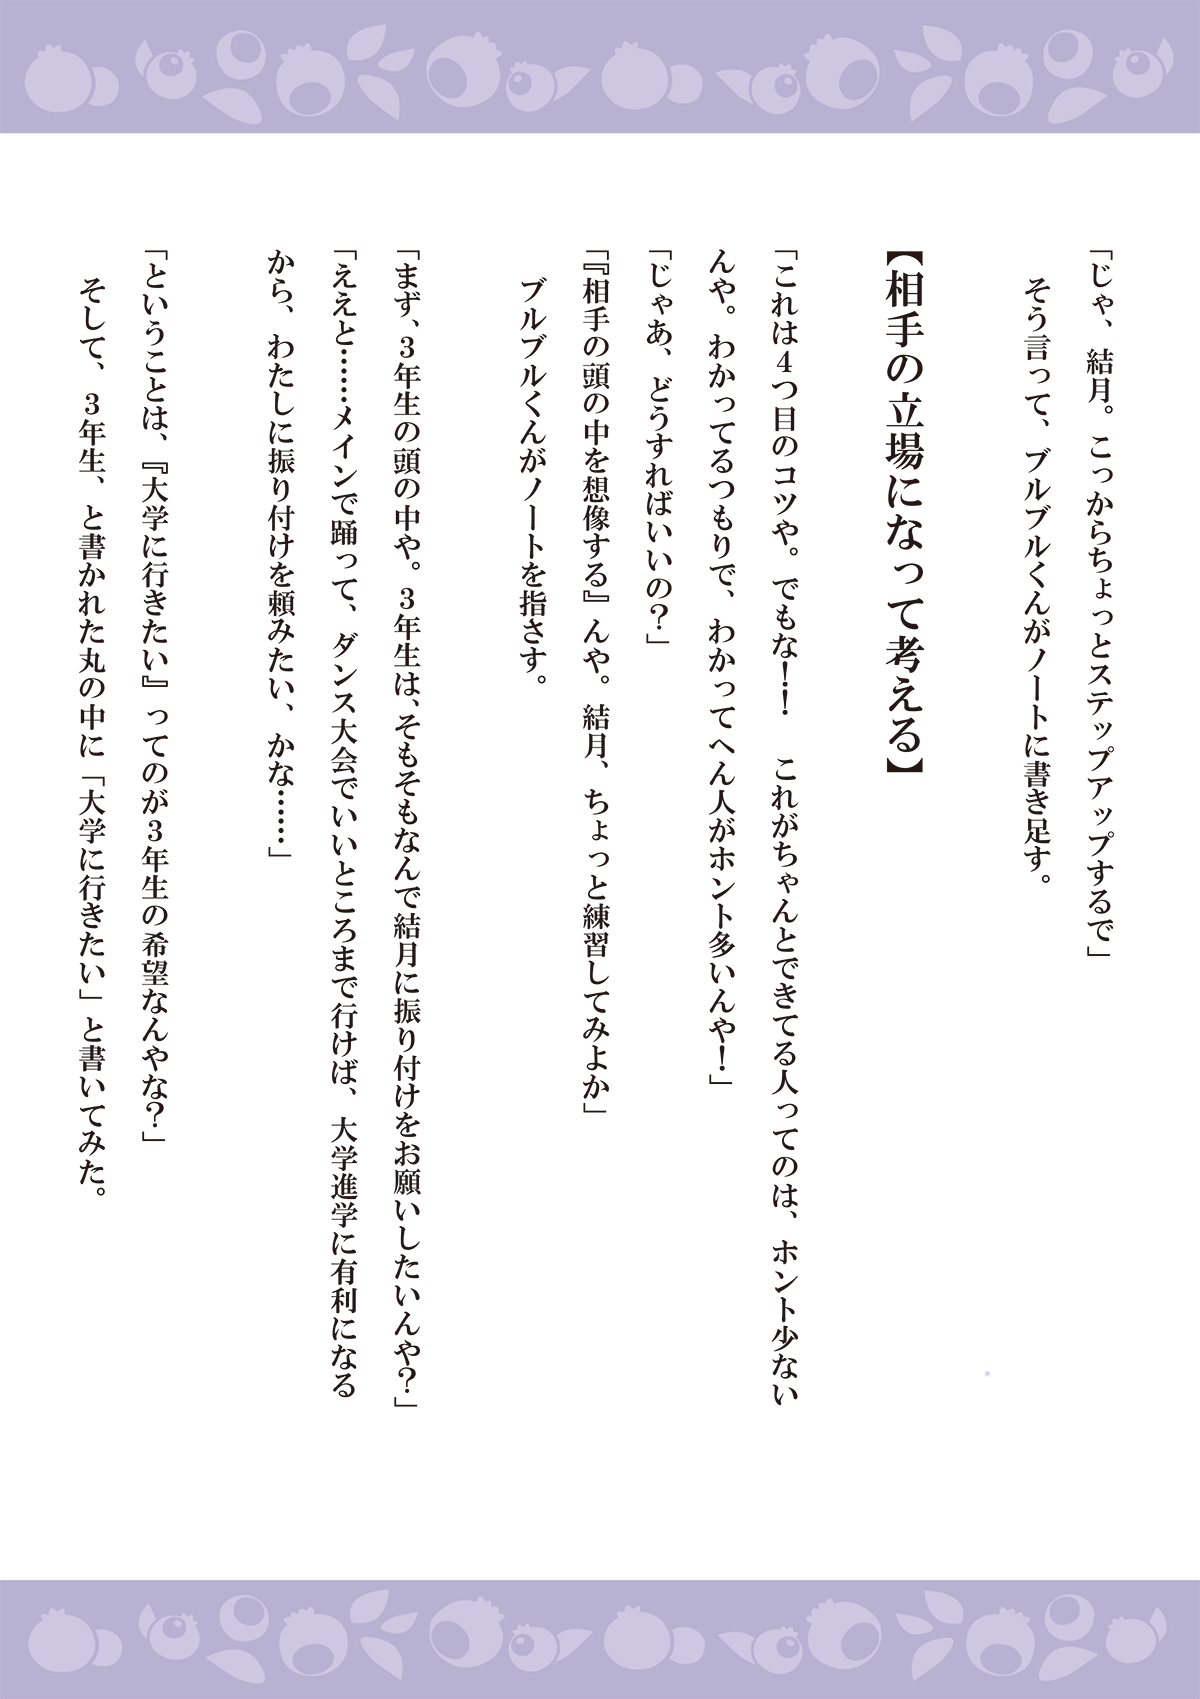 「じゃ、結月。こっからちょっとステップアップするで」
そう言って、ブルブルくんがノートに書き足す。
【相手の立場になって考える】
「これは４つ目のコツや。でもな！！　これがちゃんとできてる人ってのは、ホント少ない
んや。わかってるつもりで、わかってへん人がホント多いんや！」
「じゃあ、どうすればいいの？」
「『相手の頭の中を想像する』んや。結月、ちょっと練習してみよか」
ブルブルくんがノートを指さす。
「まず、３年生の頭の中や。３年生は、そもそもなんで結月に振り付けをお願いしたいんや？」
「ええと……メインで踊って、ダンス大会でいいところまで行けば、大学進学に有利になる
から、わたしに振り付けを頼みたい、かな……」
「ということは、『大学に行きたい』ってのが３年生の希望なんやな？」
そして、３年生、と書かれた丸の中に「大学に行きたい」と書いてみた。